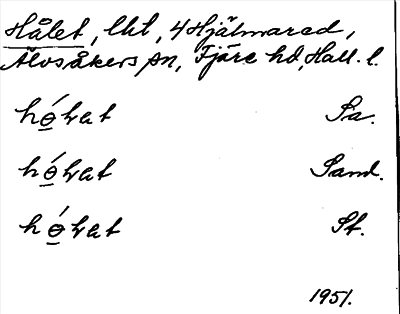 Hålet, lht, 4 Hjälmared,
Älvsåkers sn, Fjäre hd, Hall. l.
hó̲ɫat Sa.
hó̲ɫat Sand.
hó̲ɫat St.
1951.